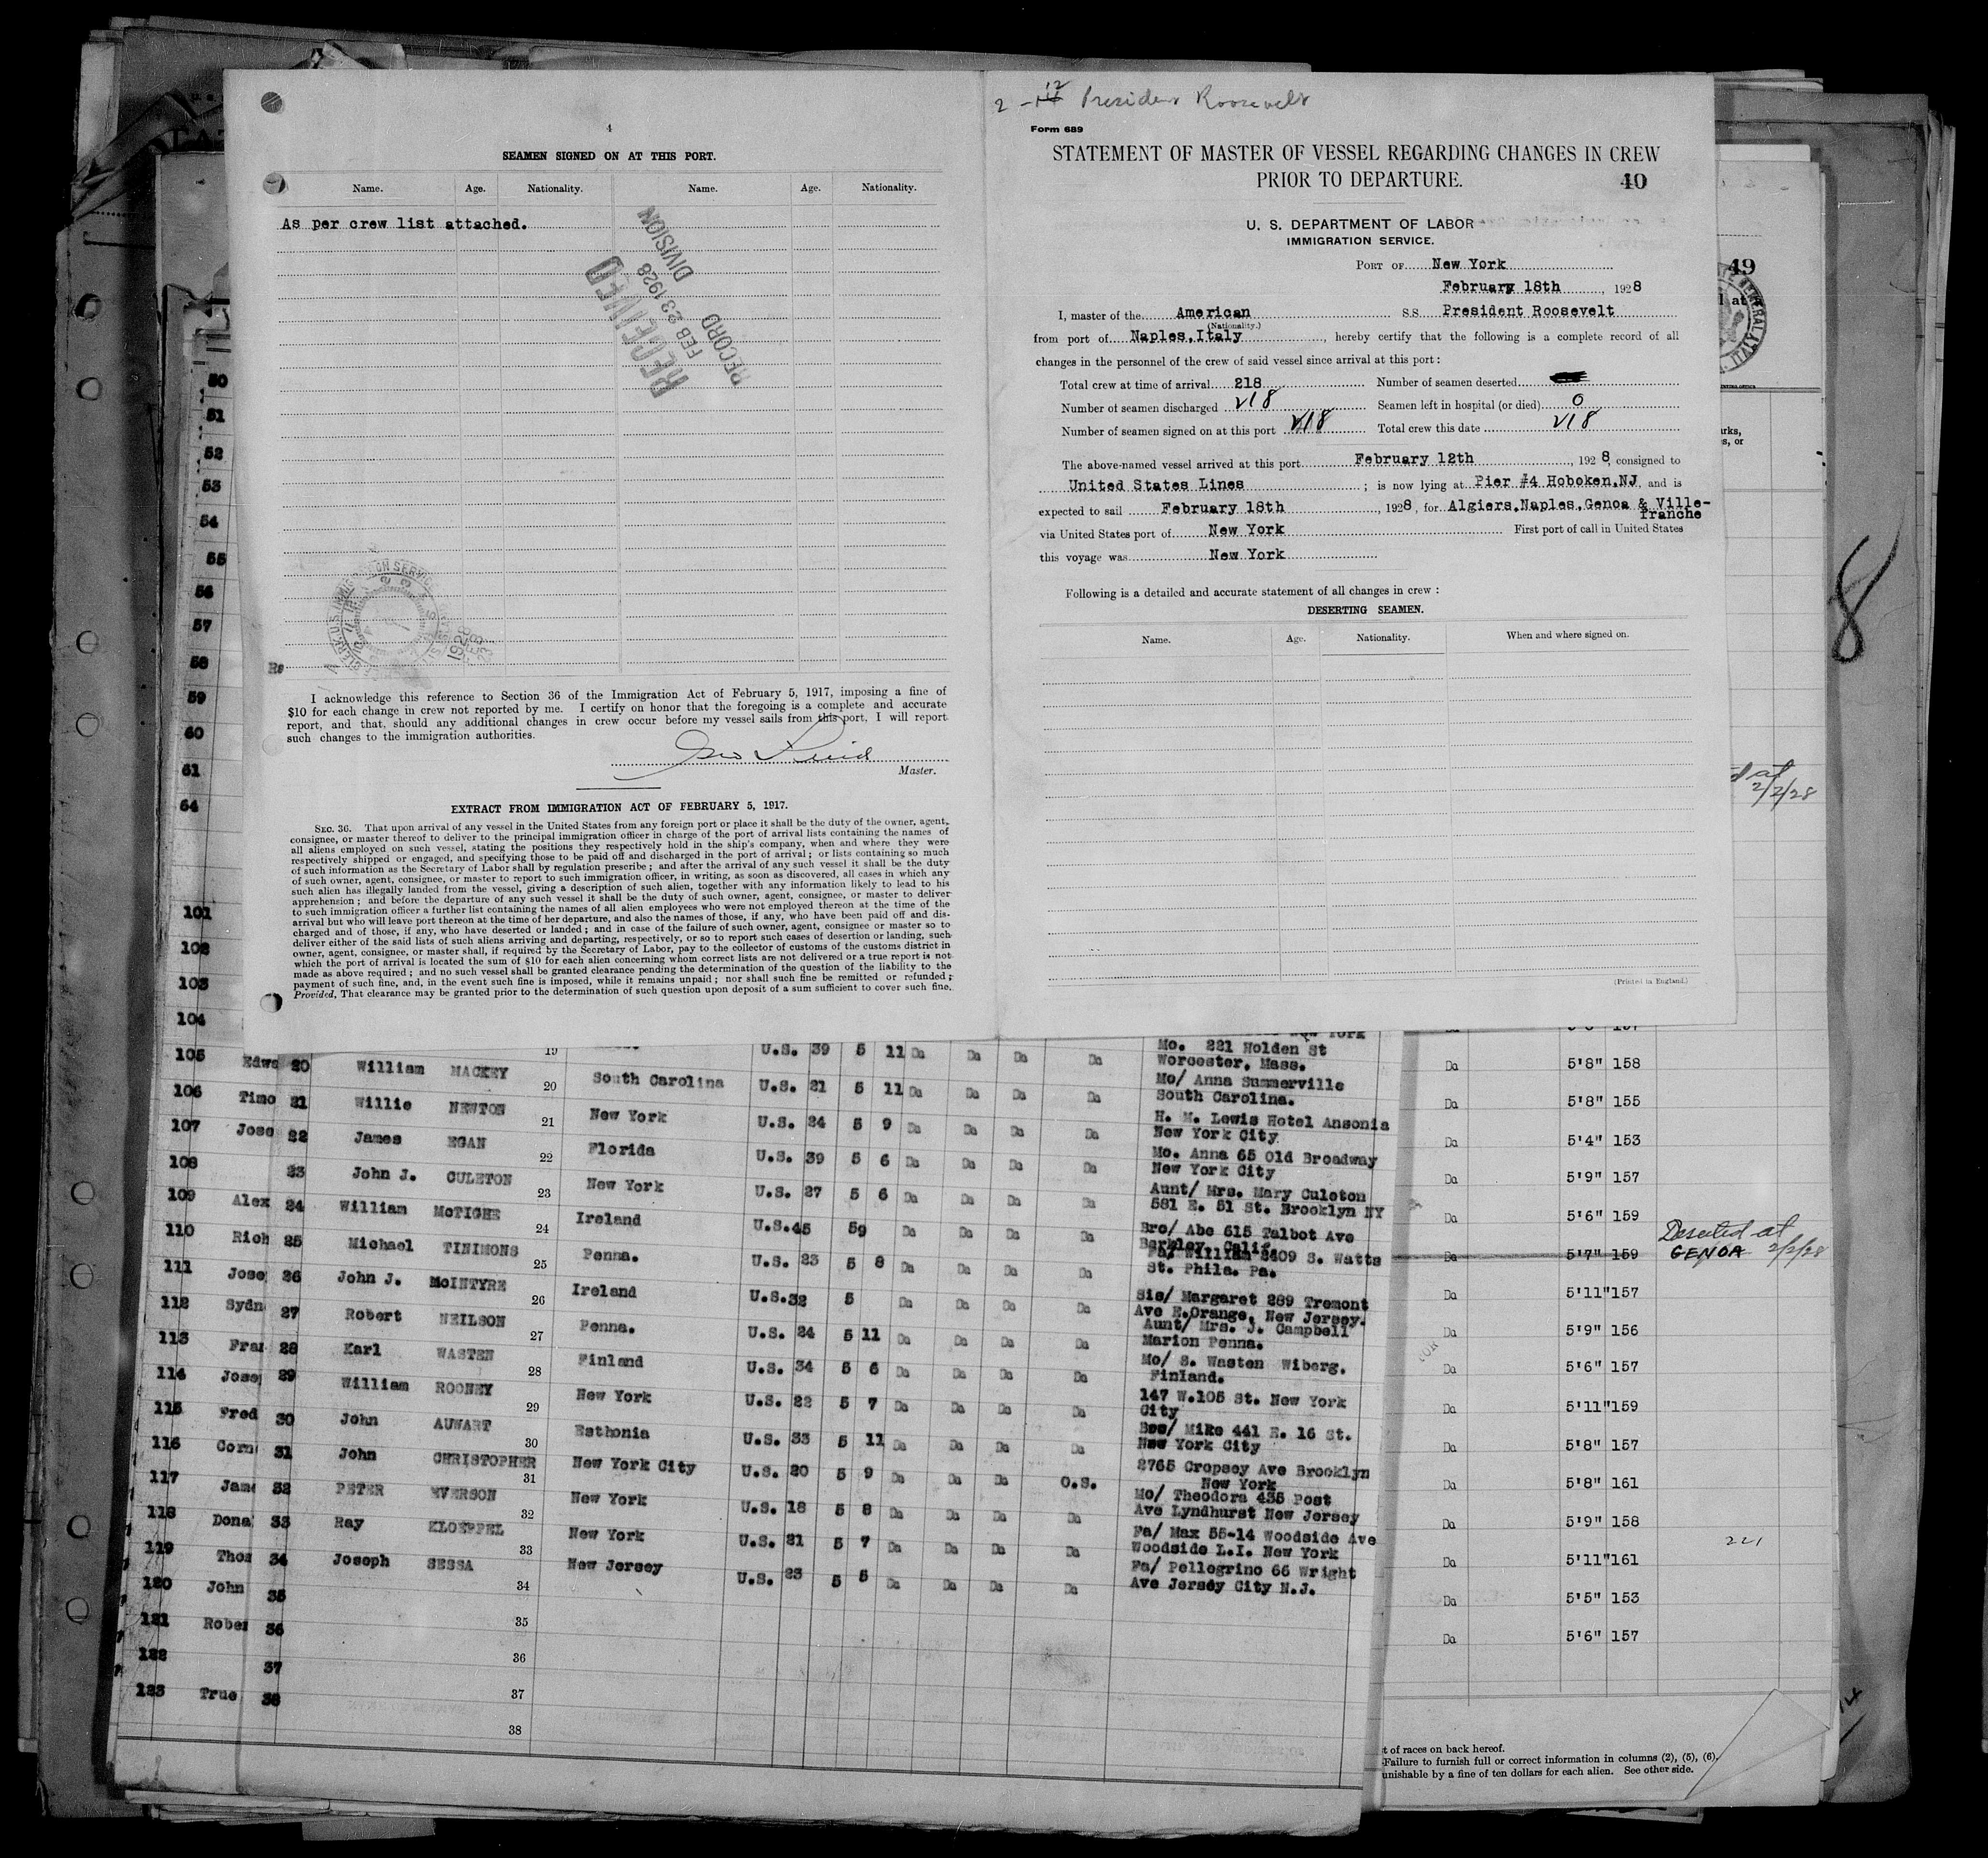 4
SEAMEN SIGNED ON AT THIS PORT.
Name. Age. Nationality. Name. Age. Nationality.
As per crew list attached.
RECEIVED
FEB 23 1928
RECORD DIVISION
I acknowledge this reference to Section 36 of the Immigration Act of February 5, 1917, imposing a fine of
$10 for each change in crew not reported by me. I certify on honor that the foregoing is a complete and accurate
report, and that, should any additional changes in crew occur before my vessel sails from this port, I will report
such changes to the immigration authorities.
Geo Reid
Master.
EXTRACT FROM IMMIGRATION ACT OF FEBRUARY 5, 1917.
SEC. 36. That upon arrival of any vessel in the United States from any foreign port or place it shall be the duty of the owner, agent,
consignee, or master thereof to deliver to the principal immigration officer in charge of the port of arrival lists containing the names of
all aliens employed on such vessel, stating the positions they respectively hold in the ship's company, when and where they were
respectively shipped or engaged, and specifying those to be paid off and discharged in the port of arrival; or lists containing so much
of such information as the Secretary of Labor shall by regulation prescribe; and after the arrival of any such vessel it shall be the duty
of such owner, agent, consignee, or master to report to such immigration officer, in writing, as soon as discovered, all cases in which any
such alien has illegally landed from the vessel, giving a description of such alien, together with any information likely to lead to his
apprehension; and before the departure of any such vessel it shall be the duty of such owner, agent, consignee, or master to deliver
to such immigration officer a further list containing the names of all alien employees who were not employed thereon at the time of the
arrival but who will leave port thereon at the time of her departure, and also the names of those, if any, who have been paid off and dis-
charged and of those, if any, who have deserted or landed; and in case of the failure of such owner, agent, consignee or master so to
deliver either of the said lists of such aliens arriving and departing, respectively, or so to report such cases of desertion or landing, such
owner, agent, consignee, or master shall, if required by the Secretary of Labor, pay to the collector of customs of the customs district in
which the port of arrival is located the sum of $10 for each alien concerning whom correct lists are not delivered or a true report is not
made as above required; and no such vessel shall be granted clearance pending the determination of the question of the liability to the
payment of such fine, and, in the event such fine is imposed, while it remains unpaid; nor shall such fine be remitted or refunded;
Provided, That clearance may be granted prior to the determination of such question upon deposit of a sum sufficient to cover such fine.
2 - 12 President Roosevelt
Form 689
STATEMENT OF MASTER OF VESSEL REGARDING CHANGES IN CREW
PRIOR TO DEPARTURE. 40
U. S. DEPARTMENT OF LABOR
IMMIGRATION SERVICE.
PORT OF New York
February 18th, 1928
I, master of the American S.S. President Roosevelt
(Nationality.)
from port of Naples, Italy, hereby certify that the following is a complete record of all
changes in the personnel of the crew of said vessel since arrival at this port:
Total crew at time of arrival 218 Number of seamen deserted
Number of seamen discharged 218 Seamen left in hospital (or died) 0
Number of seamen signed on at this port 218 Total crew this date 218
The above-named vessel arrived at this port February 12th, 1928, consigned to
United States Lines; is now lying at Pier #4 Hoboken.NJ. and is
expected to sail February 18th, 1928, for Algiers, Naples, Genoa & Ville-
franche
via United States port of New York First port of call in United States
this voyage was New York
Following is a detailed and accurate statement of all changes in crew:
DESERTING SEAMEN.
Name. Age. Nationality. When and where signed on.
(Printed in England.)
49
8
50
51
52
53
54
55
56
57
58
59
60
61
64
101
102
103
104
2/2/28
19 U.S. 39 5 11 Do Do Do Do Mo. 221 Holden St
Worcester, Mass.
105 Edwa 20 William MACKEY 20 South Carolina U.S. 21 5 11 Do Do Do Do Mo/ Anna Summerville
South Carolina.
106 Timo 21 Willie NEWTON 21 New York U.S. 24 5 9 Do Do Do Do H. M. Lewis Hotel Ansonia
New York City
107 Jose 22 James EGAN 22 Florida U.S. 39 5 6 Do Do Do Do Mo. Anna 65 Old Broadway
New York City
108 23 John J. CULETON 23 New York U.S. 27 5 6 Do Do Do Do Aunt/ Mrs. Mary Culeton
581 E. 51 St. Brooklyn NY
109 Alex 24 William McTIGHE 24 Ireland U.S. 45 59 Do Do Do Do Bro/ Abe 615 Talbot Ave
Berkley, Calif.
110 Rich 25 Michael TINIMONS 25 Penna. U.S. 23 5 8 Do Do Do Do Fa/ William 2409 S. Watts
St. Phila. Pa.
111 Jose 26 John J. McINTYRE 26 Ireland U.S. 32 5 Do Do Do Do Sis/ Margaret 289 Tremont
Ave E.Orange, New Jersey.
112 Sydn 27 Robert NEILSON 27 Penna. U.S. 24 5 11 Do Do Do Do Aunt/ Mrs. J. Campbell
Marion Penna.
113 Fran 28 Karl WASTEN 28 Finland U.S. 34 5 6 Do Do Do Do Mo/ S. Wasten Wiberg.
Finland.
114 Jose 29 William ROONEY 29 New York U.S. 22 5 7 Do Do Do Do 147 W.105 St. New York
City
115 Fred 30 John AUWART 30 Esthonia U.S. 33 5 11 Do Do Do Do Mike 441 E. 16 St.
New York City
116 Corn 31 John CHRISTOPHER 31 New York City U.S. 20 5 9 Do Do Do O.S. 2765 Cropsey Ave Brooklyn
New York
117 Jame 32 PETER EVERSON 32 New York U.S. 18 5 8 Do Do Do Do Mo/ Theodora 435 Post
Ave Lyndhurst New Jersey
118 Dona 33 Ray KLOEPPEL 33 New York U.S. 21 5 7 Do Do Do Do Fa/ Max 55-14 Woodside Ave
Woodside L.I. New York
119 Thom 34 Joseph SESSA 34 New Jersey U.S. 23 5 5 Do Do Do Do Fa/ Pellegrino 66 Wright
Ave Jersey City N.J.
120 John 35 35
121 Rober 36 36
122 37 37
123 True 38 38
Do 5'8" 158
Do 5'8" 155
Do 5'4" 153
Do 5'9" 157
Do 5'6" 159
Do 5'7" 159 Deserted at GENOA 2/2/28
Do 5'11" 157
Do 5'9" 156
Do 5'6" 157
Do 5'11" 159
Do 5'8" 157
Do 5'8" 161
Do 5'9" 158
221
Do 5'11" 161
Do 5'5" 153
Do 5'6" 157
t of races on back hereof.
Failure to furnish full or correct information in columns (2), (5), (6),
unishable by a fine of ten dollars for each alien. See other side.